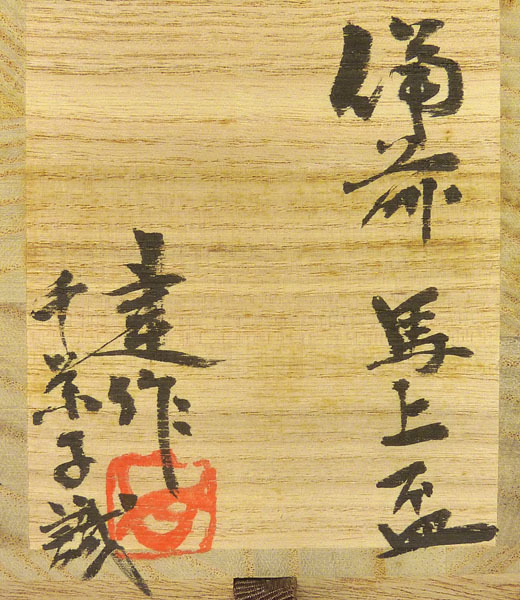 備前
馬上盃
建作
千栄子識